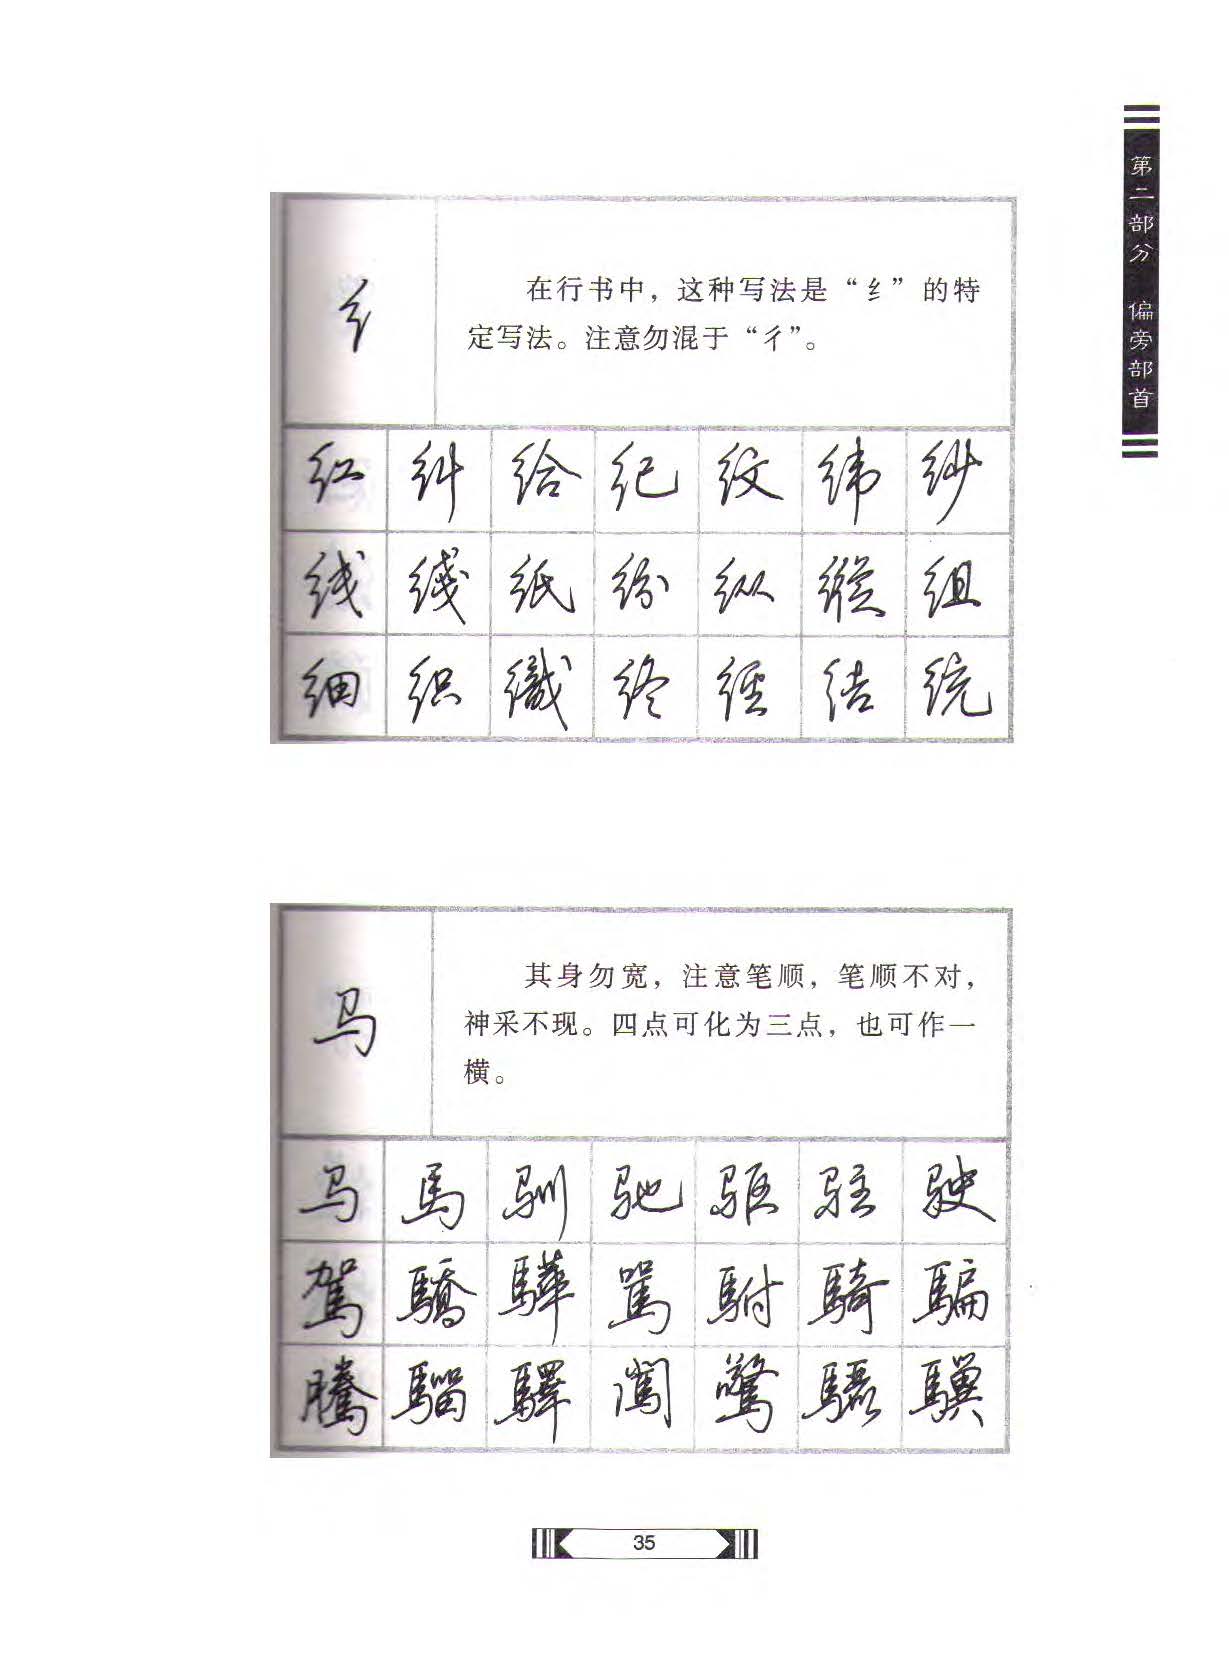 第二部分 偏旁部首
纟
在行书中，这种写法是“纟”的特
定写法。注意勿混于“彳”。
红 纠 给 纪 纹 纬 纱
线 綫 纸 纷 纵 縱 组
细 织 織 终 經 结 统
马
其身勿宽，注意笔顺，笔顺不对，
神采不现。四点可化为三点，也可作一
横。
马 馬 驯 驰 驱 驻 驶
駕 驕 驊 駡 駙 騎 騙
騰 騮 驛 闖 驚 驥
35